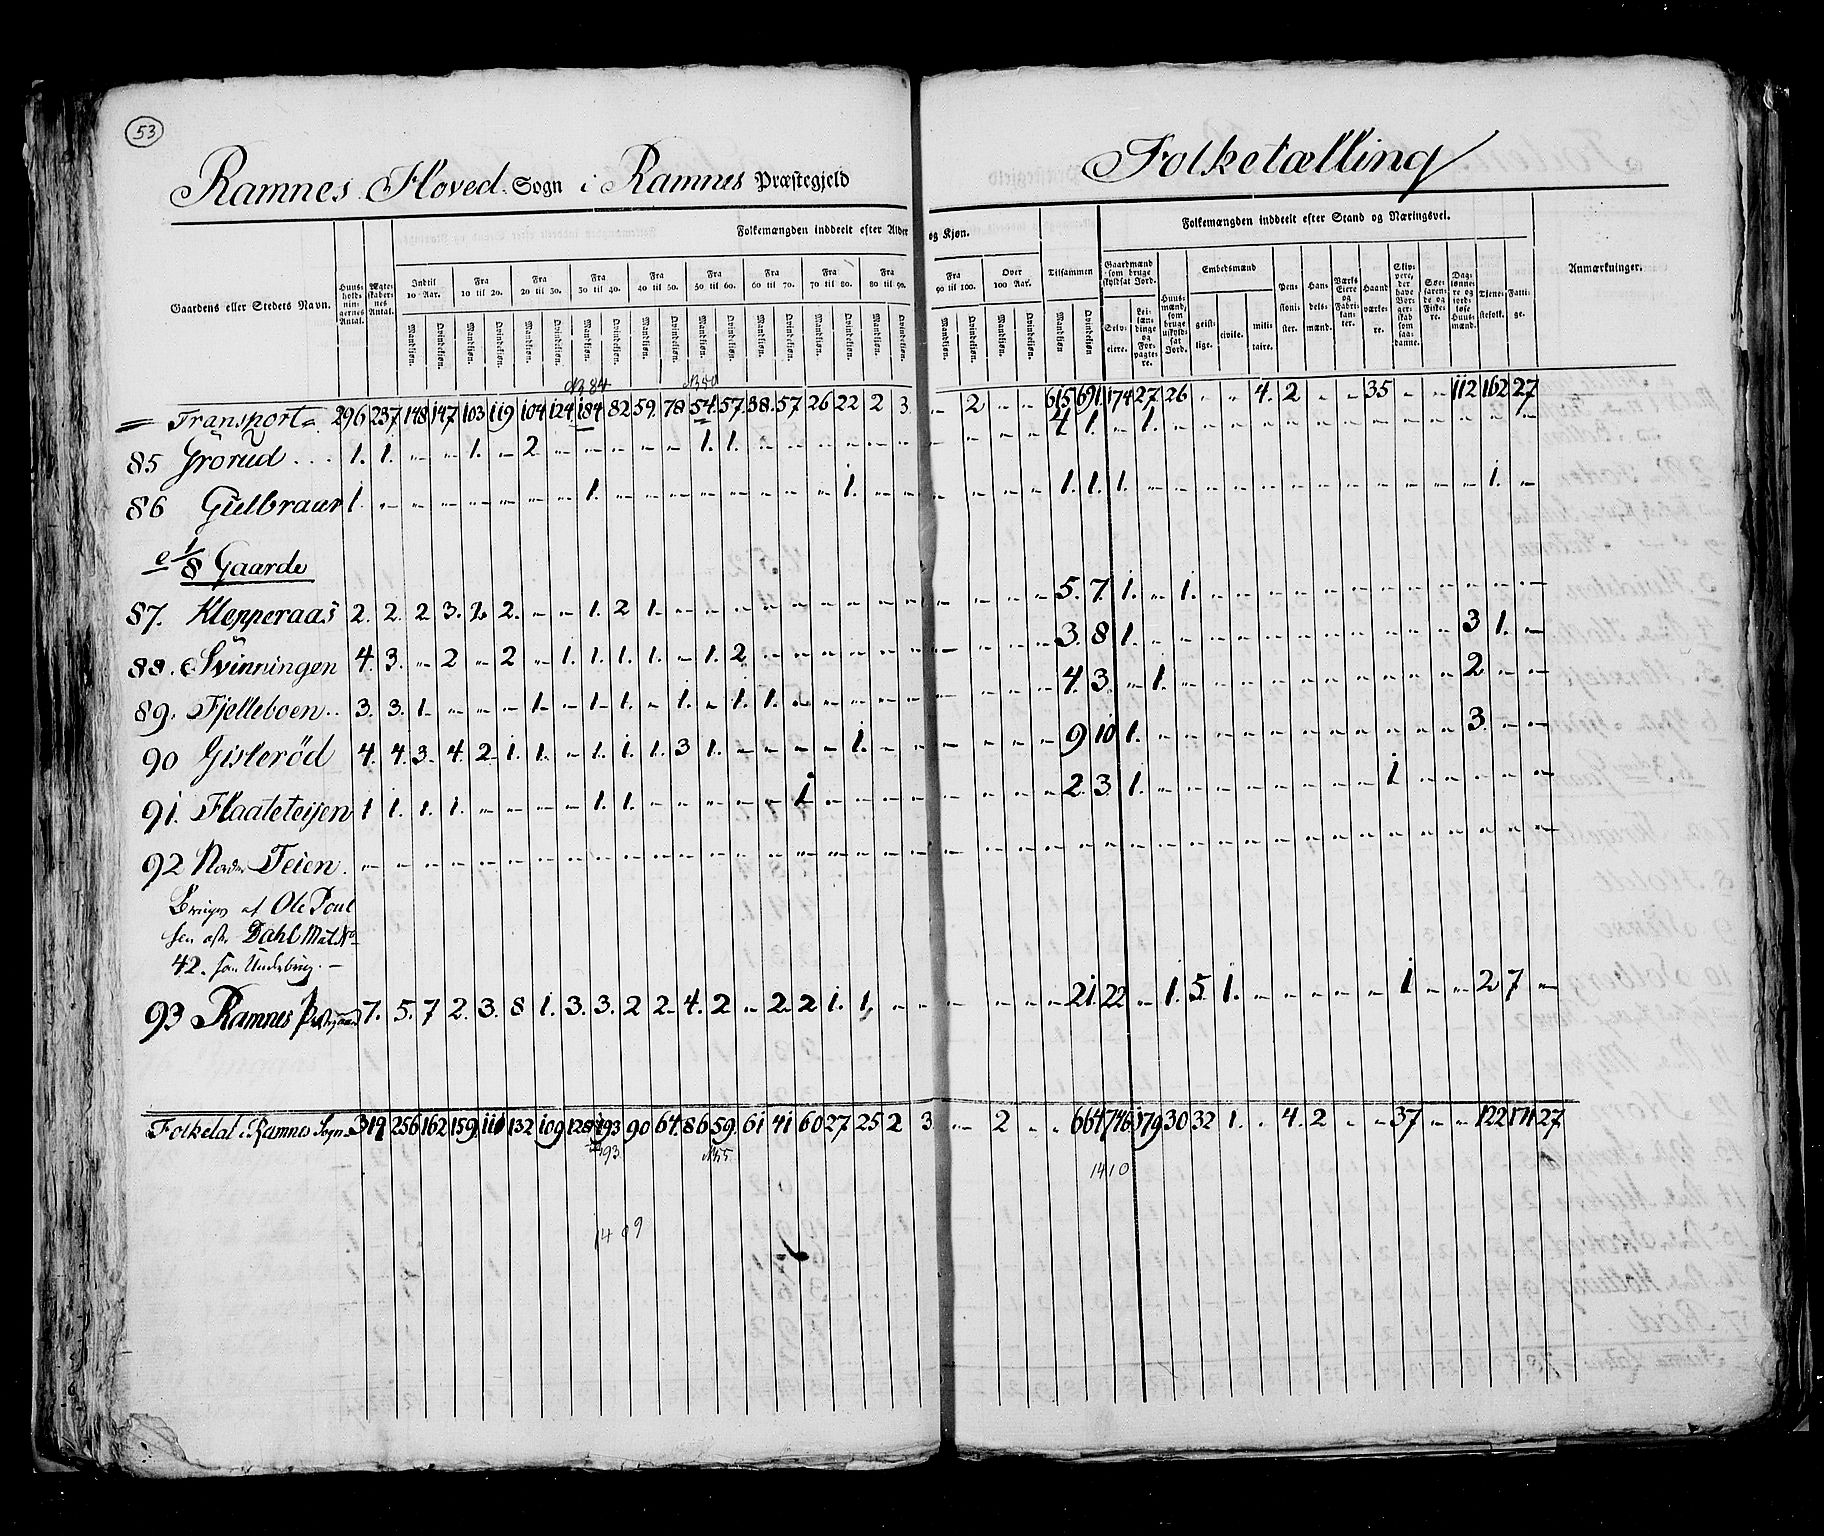 53
Ramnes Hoved Sogn i Ramnes Præstegjeld
Folketælling
Folkemængden inddeelt efter Alder og Kjøn.
Folkemængden inddeelt efter Stand og Næringsvei.
Gaardens eller Stedets Navn.
Huusholdningernes Antal.
Ægteskabernes Antal.
Indtil 10 Aar.
Fra 10 til 20.
Fra 20 til 30.
Fra 30 til 40.
Fra 40 til 50.
Fra 50 til 60.
Fra 60 til 70.
Fra 70 til 80.
Fra 80 til 90.
Fra 90 til 100.
Over 100 Aar.
Tilsammen
Mandkjøn. Qvindekjøn.
Gaardmænd som bruge skyldsat Jord.
Selveiere.
Leilændinge og Forpagtere.
Huusmænd, som bruge uskyldsat Jord.
Embedsmænd
geistlige. civile. militaire.
Pensionister.
Handelsmænd.
Værks Eiere og Fabrikanter.
Haandværkere.
Daglønnere og jordløse Huusmænd.
Tjenestefolk.
Fattige.
Anmærkninger.
NB 84 NB 50
Transport 296 237 148 147 103 119 104 124 184 82 59 78 54 57 38 57 26 22 2 3 - 2 - - 615 691 174 27 26 - - 4 2 - - 35 - - 112 162 27
85 Grorud . . . 1. 1. - - 1. - 2 - - - - - 1. 1. - - - - - - - - - - 4 1. - 1. - - - - - - - - - - - - -
86 Gulbraar 1. - - - - - - - 1. - - - - - - - - 1. - - - - - - 1. 1. 1. - - - - - - - - - - - - 1. -
e 1/8 Gaarde
87. Klepperaas 2. 2. 2 3. 2 2. - - 1. 2 1. - - - - - - - - - - - - - 5. 7. 1. - 1. - - - - - - - - - - - -
88. Svinningen 4. 3. - 2 - 2 - 1. 1. 1. 1. - 1. 2 - - - - - - - - - - 3. 8 1. - - - - - - - - - - - 3 1. -
89. Fjelleboen.. 3. 3. 1. - - - 1. - 1. 1. - 1. - 1. 1. - - - - - - - - - 4. 3. - 1. - - - - - - - - - - 2 - -
90 Gislerød 4. 4. 3. 4. 2 1. 1. - 1. 1. 1. 3 1. - - - - 1. - - - - - - 9 10 1. - - - - - - - - - - - 3. - -
91. Flaateteijen 1 1. 1. 1. - - - - 1. 1. - - - - - 1 - - - - - - - - 2 3. 1. - - - - - - - - 1 - - - - -
92 Nordre Teien.
Bruges af Ole Poul
sen efter Dahl Mat No
42. som Underbrug. -
93 Ramnes Præstegaard 7. 5. 7 2. 3. 8 1. 3. 3. 2 2. 4. 2 - 2. 2 1. 1. - - - - - - 21. 22 - 1. 5 1. - - - - - 1 - - 2 7 -
Folketal i Ramnes Sogn 319 256 162 159 110 132 109 128 193 90 64. 86 59. 61 41 60 27 25 2 3. - 2 - - 664 746 179 30 32 1. - 4. 2 - - 37 - - 122 171 27
1410
1409